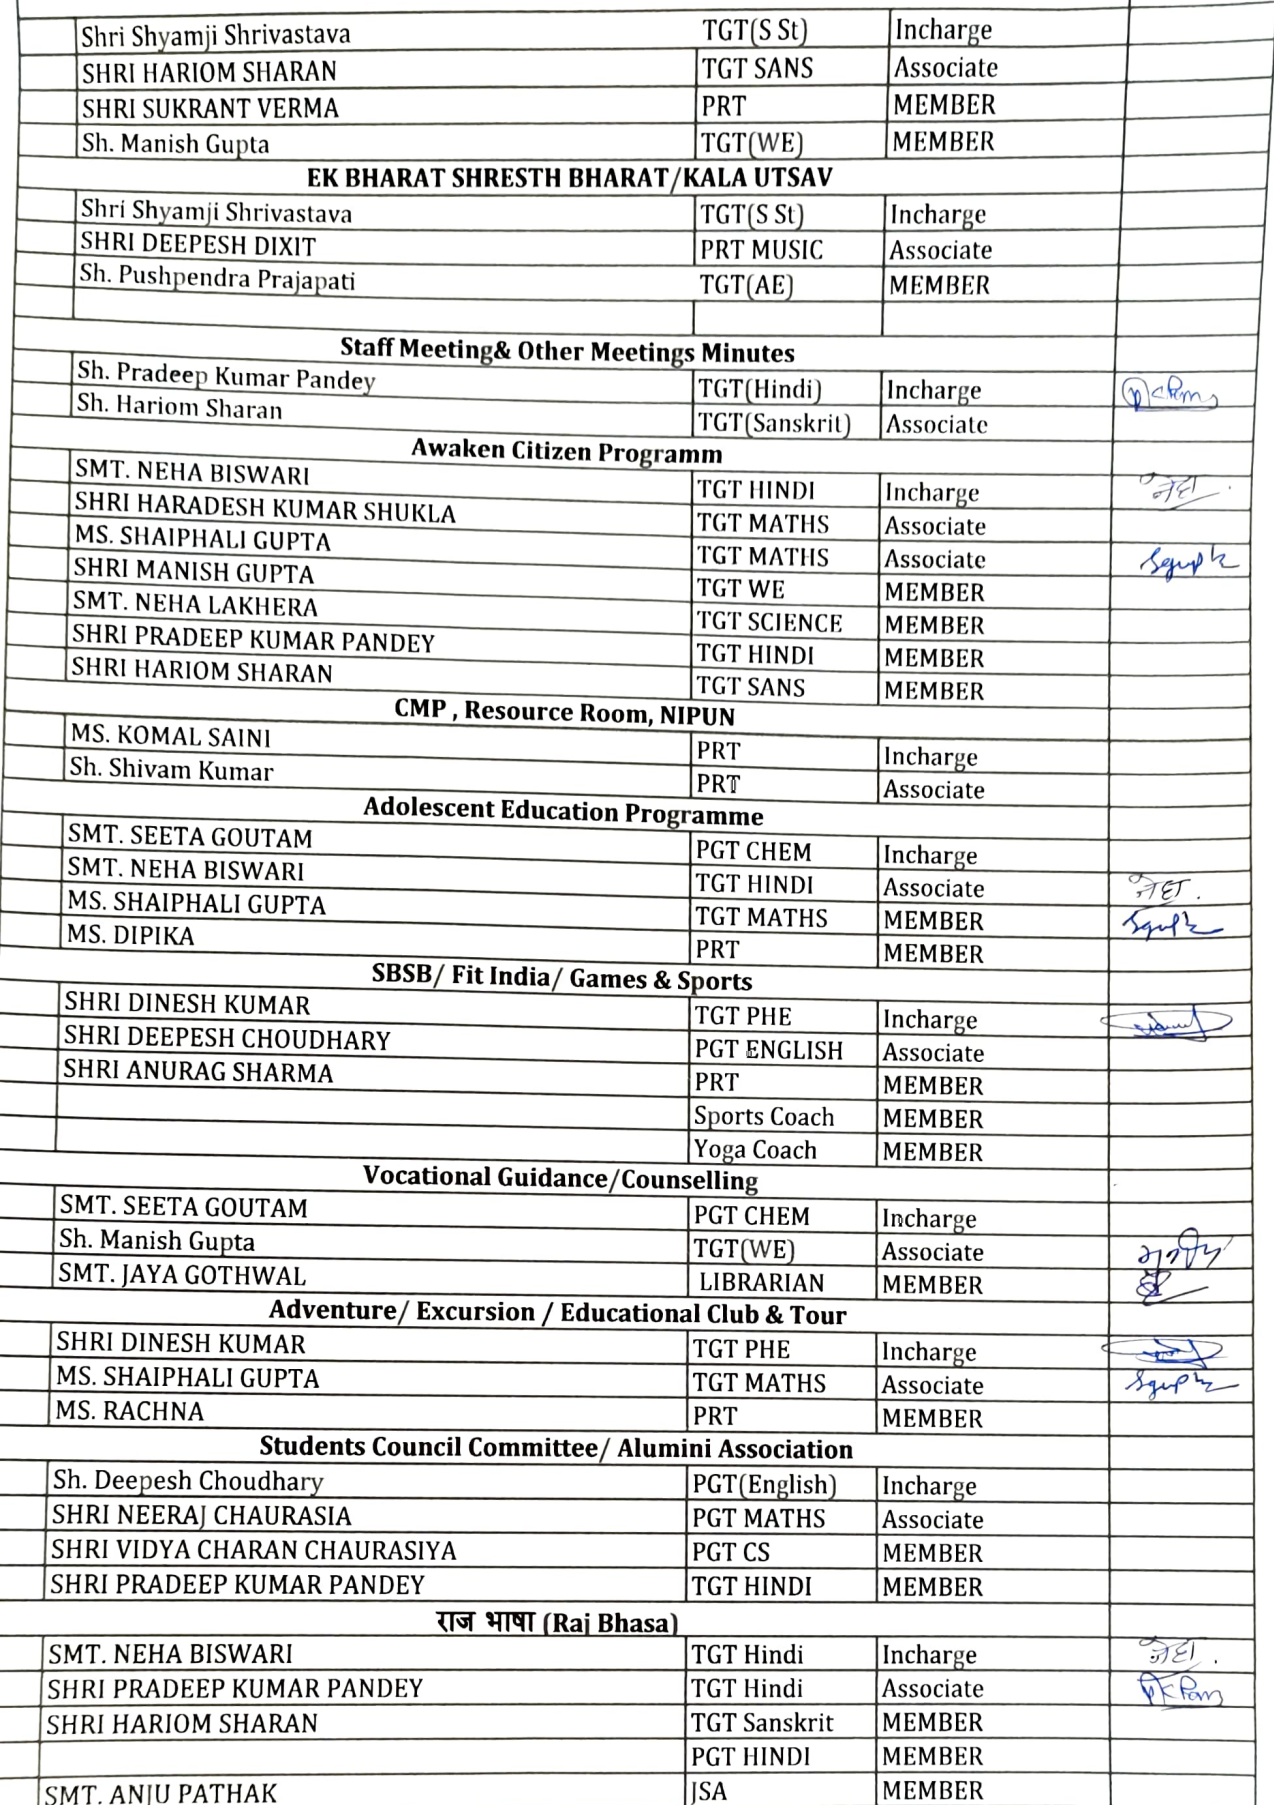 Shri Shyamji Shrivastava TGT(S St) Incharge
SHRI HARIOM SHARAN TGT SANS Associate
SHRI SUKRANT VERMA PRT MEMBER
Sh. Manish Gupta TGT(WE) MEMBER
EK BHARAT SHRESTH BHARAT/KALA UTSAV
Shri Shyamji Shrivastava TGT(S St) Incharge
SHRI DEEPESH DIXIT PRT MUSIC Associate
Sh. Pushpendra Prajapati TGT(AE) MEMBER
Staff Meeting& Other Meetings Minutes
Sh. Pradeep Kumar Pandey TGT(Hindi) Incharge
Sh. Hariom Sharan TGT(Sanskrit) Associate
Awaken Citizen Programm
SMT. NEHA BISWARI TGT HINDI Incharge नेहा
SHRI HARADESH KUMAR SHUKLA TGT MATHS Associate
MS. SHAIPHALI GUPTA TGT MATHS Associate
SHRI MANISH GUPTA TGT WE MEMBER
SMT. NEHA LAKHERA TGT SCIENCE MEMBER
SHRI PRADEEP KUMAR PANDEY TGT HINDI MEMBER
SHRI HARIOM SHARAN TGT SANS MEMBER
CMP , Resource Room, NIPUN
MS. KOMAL SAINI PRT Incharge
Sh. Shivam Kumar PRT Associate
Adolescent Education Programme
SMT. SEETA GOUTAM PGT CHEM Incharge
SMT. NEHA BISWARI TGT HINDI Associate नेहा
MS. SHAIPHALI GUPTA TGT MATHS MEMBER
MS. DIPIKA PRT MEMBER
SBSB/ Fit India/ Games & Sports
SHRI DINESH KUMAR TGT PHE Incharge
SHRI DEEPESH CHOUDHARY PGT ENGLISH Associate
SHRI ANURAG SHARMA PRT MEMBER
Sports Coach MEMBER
Yoga Coach MEMBER
Vocational Guidance/Counselling
SMT. SEETA GOUTAM PGT CHEM Incharge
Sh. Manish Gupta TGT(WE) Associate
SMT. JAYA GOTHWAL LIBRARIAN MEMBER
Adventure/ Excursion / Educational Club & Tour
SHRI DINESH KUMAR TGT PHE Incharge
MS. SHAIPHALI GUPTA TGT MATHS Associate
MS. RACHNA PRT MEMBER
Students Council Committee/ Alumini Association
Sh. Deepesh Choudhary PGT(English) Incharge
SHRI NEERAJ CHAURASIA PGT MATHS Associate
SHRI VIDYA CHARAN CHAURASIYA PGT CS MEMBER
SHRI PRADEEP KUMAR PANDEY TGT HINDI MEMBER
राज भाषा (Raj Bhasa)
SMT. NEHA BISWARI TGT Hindi Incharge नेहा
SHRI PRADEEP KUMAR PANDEY TGT Hindi Associate
SHRI HARIOM SHARAN TGT Sanskrit MEMBER
PGT HINDI MEMBER
SMT. ANJU PATHAK JSA MEMBER